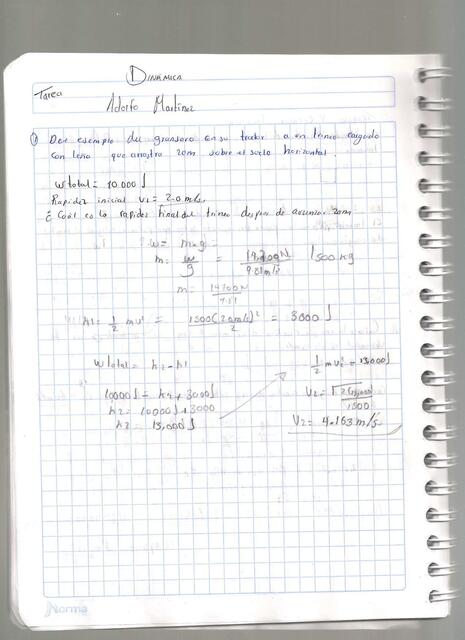 Dinámica
Tarea
Adolfo Martinez
① Del ejemplo del granjero en su tractor a un trineo cargado
con leña que arrastra 20m sobre el suelo horizontal.
W total = 10.000 J
Rapidez inicial V1 = 2.0 m/s
¿ Cuál es la rapidez final del trineo despues de avanzar 20m
w = m.g =
m = w/g = 14,700N / 9.81 m/s 1500 kg
m = 14700N / 9.81
k1 = 1/2 mv² = 1500(2.0m/s)² / 2 = 3000 J
W total = k2 - k1
1/2 mv2² = 13,000 J
10000 J = k2 + 3000 J
V2 = √ 2(13,000) / 1500
k2 = 10000 J + 3000
k2 = 13,000 J
V2 = 4.163 m/s
Norma